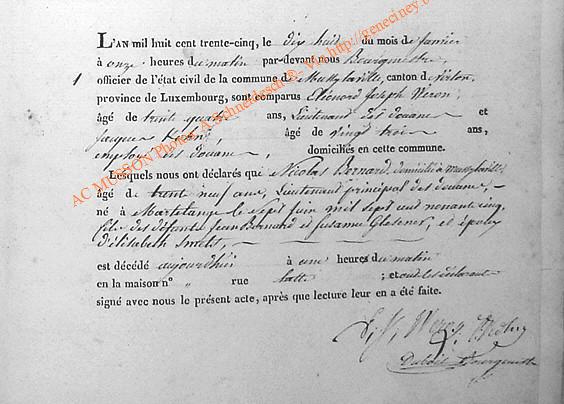 L'AN mil huit cent trente-cinq, le dix huit du mois de Janvier
à onze heures du matin par-devant nous Bourgmestre
1 officier de l'état civil de la commune de canton de Virton,
province de Luxembourg, sont comparus Eléonord Joseph Weron,
âgé de trente quatre ans, Lieutenant des douanes et
Jacques âgé de vingt trois ans,
employé des douanes, domiciliés en cette commune.
Lesquels nous ont déclarés que Nicolas Bernard, domicilié à
âgé de trente neuf ans, Lieutenant principal des douanes,
né à Martelange le sept Juin mil sept cent nonante cinq
fils des défunts Jean Bernard et Susanne Glesener, et époux
d'Elisabeth Smets,
est décédé aujourdhui à une heures du matin
en la maison n° " rue ; et ont les déclarants
signé avec nous le présent acte, après que lecture leur en a été faite.
AC MUSSON Photos A Schneidesch ©- Ww http://geneciney